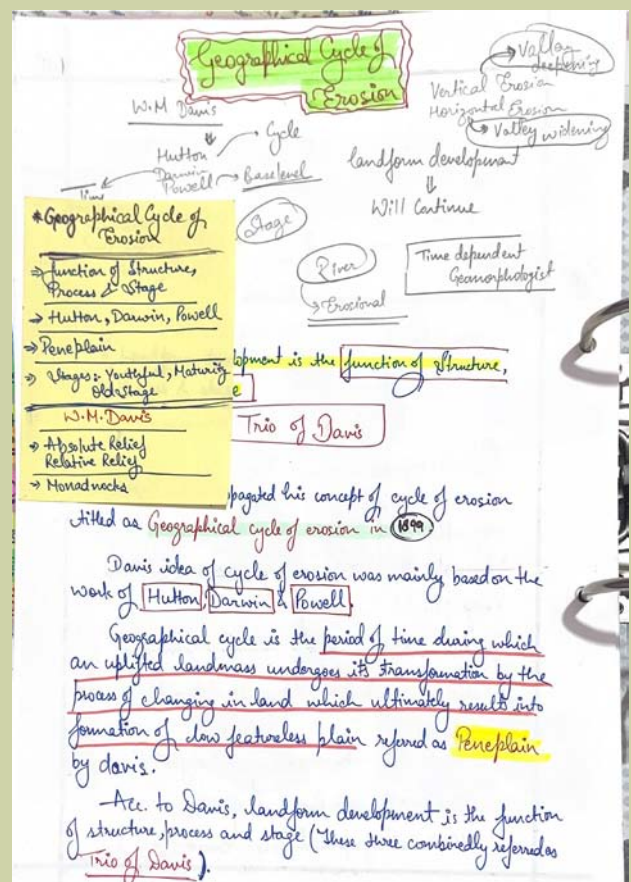 Geographical Cycle of
Erosion
Valley
deepening
Vertical Erosion
Horizontal Erosion
Valley widening
W.M Davis
Cycle
Hutton
Darwin
Powell
Baselevel
Time
landform development
Will Continue
Stage
River
Erosional
Time dependent
Geomorphologist
*Geographical Cycle of
Erosion
⇒ function of Structure,
Process & Stage
→ Hutton, Darwin, Powell
⇒ Peneplain
⇒ Stages: Youthful, Maturity
Old Stage
W.M.Davis
⇒ Absolute Relief
Relative Relief
→ Monadnocks
lopment is the function of Structure,
e
Trio of Davis
opagated his concept of cycle of erosion
titled as Geographical cycle of erosion in 1899
Davis idea of cycle of erosion was mainly based on the
work of Hutton, Darwin & Powell.
Geographical cycle is the period of time during which
an uplifted landmass undergoes its transformation by the
process of changing in land which ultimately results into
formation of low featureless plain referred as Peneplain
by davis.
Acc. to Davis, landform development is the function
of structure, process and stage (These three combinedly referred as
Trio of Davis).